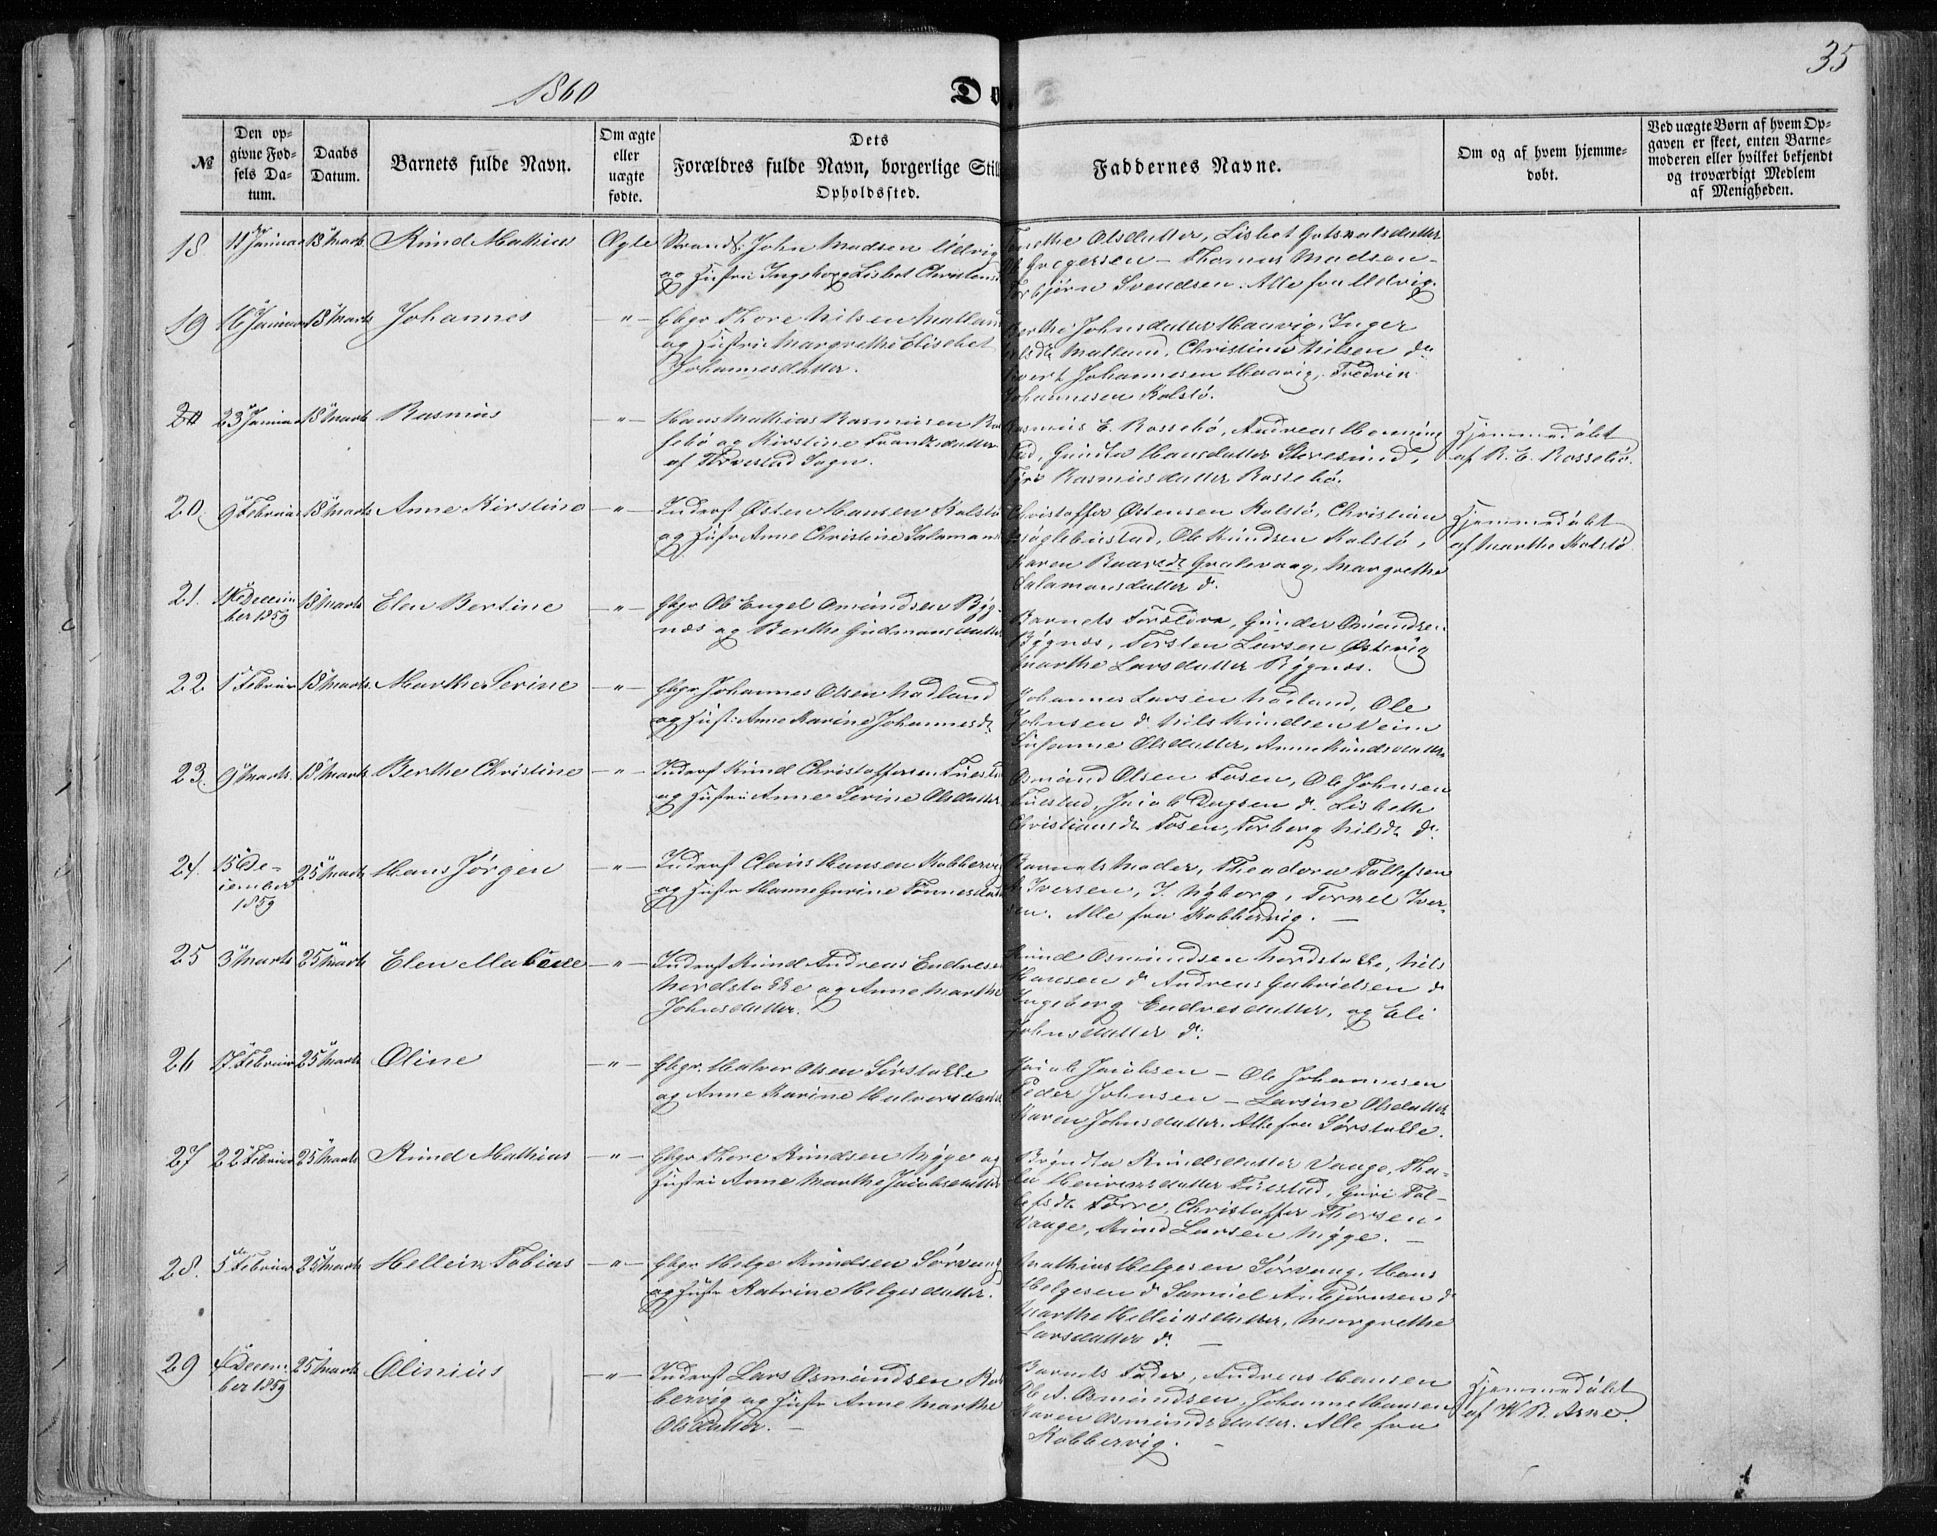 1860
35
Do
№
Den op-
givne Fød-
sels Da-
tum.
Daabs
Datum.
Barnets fulde Navn.
Om ægte
eller
uægte
fødte.
Dets
Forældres fulde Navn, borgerlige Stil
Opholdssted.
Faddernes Navne.
Om og af hvem hjemme-
døbt.
Ved uægte Børn af hvem Op-
gaven er skeet, enten Barne-
moderen eller hvilket bekjendt
og troværdigt Medlem
af Menigheden.
18 11 Januar 18 Marts Knud Mathias Ægte Strands. John Madsen Udvig
og Hustru Ingeborg Lisbet Christens
Olsdatter, Lisbet Gotskalsdatter
Gregersen - Thomas Madsen -
Torbjørn Svendsen. Alle fra Udvig.
19 16 Januar 18 Marts Johannes -"- Gbgr Thore Nilsen Matland
og Hustru Margrethe Elisebet
Johannesdatter.
Berthe Johnsdatter Haavig, Inger
Matland, Christian Nilsen do
Johannesen Haavig, Fredrik
Johannesen Kalstø.
20 23 Januar 18 Marts Rasmus -"- Hans Mathias Rasmusen Ros
sebø og Kirstine Frantzdatter
af Torvestad Sogn.
Rasmus E. Rossebø, Andreas Henning
stad, Gunda Hansdatter Storesund,
Rasmusdatter Rossebø.
Hjemmedøbt
af R. E. Rossebø.
20. 9 Februar 18 Marts Anne Kirstine -"- Inderst Østen Hansen Kalstø
og Hustr Anne Christine Salamons
Christoffer Østensen Kalstø, Christian
Møglebustad, Ole Knudsen Kalstø,
Karen Baarsdt Qvalevaag, Margrethe
Salamonsdatter do.
Hjemmedøbt
af Marthe Kalstø
21. Decem 18 Marts Elen Bertine -"- Gbgr Ole Engel Omundsen Byg-
ber 1859
næs og Berthe Gudmunsdatter
Barnets Forældre, Gunder Omundsen
Bygnæs, Torsten Larsen Østevig
Marthe Larsdatter Bygnæs.
22 1 Februar 18 Marts Marthe Serine -"- Gbgr Johannes Olsen Nødland
og Hust: Anne Karine Johannesdt
Johannes Larsen Nødland, Ole
Johnsen do Nils Knudsen Veim
Susanne Olsdatter, Anne Knudsdatter
23. 9 Marts. 18 Marts Berthe Christine -"- Inderst Knud Christoffersen Tuestad
og Hustru Anne Serine Olsdatter
Osmund Olsen Fosen, Ole Johnsen
Tuestad, Jacob Dagsen do. Lisbeth
Christiansdt Fosen, Torborg Nilsdt do.
24. 15 De- 25 Marts Hans Jørgen -"- Inderst Claus Hansen Kobbervig
cember
1859
og Hustr Hanne Gurine Tønnesdatt
Barnets Moder, Theodora Tollefsen
Iversen, J. Nyborg, Tornel Iver-
sen. Alle fra Kobbervig. -
25 3 Marts 25 Marts Elen Malene -"- Inderst Knud Andreas Endresen
Nordstokke og Anne Marthe
Johnsdatter.
Knud Osmundsen Nordstokke, Nils
Hansen do Andreas Gabrielsen do
Ingeborg Endresdatter, og Eli
Johnsdatter do.
26 17 Februar 25 Marts Oline -"- Gbgr. Halvor Olsen Sørstokke
og Anne Karine Halvorsdatter
Jacob Jacobsen - Ole Johannesen
Peder Johnsen - Larsine Olsdatter
Karen Johnsdatter. Alle fra Sørstokke.
27 22 Februar 25 Marts Knud Mathias -"- Gbgr Thore Knudsen Nygge og
Hustru Anne Marthe Jacobsdatter
Brynhta Knudsdatter Vaage, Tho-
Tuestad, Guri Tol-
lefsdt Førre, Christoffer Thorsen
Vaage, Knud Larsen Nygge. -
28. 5 Februar 25 Marts Hellein Tobias -"- Gbgr Helge Knudsen Sørvaag
og Hustr Katrine Helgesdatter.
Mathias Helgesen Sørvaag, Hans
Helgesen do Samuel Anbjørnsen do
Marthe Helleinsdatter, Margrethe
Larsdatter do. -
29 4 Decem- 25 Marts Olinius -"- Inderst Lars Osmundsen Kob
ber 1859
bervig og Hustr Anne Marthe
Olsdatter. -
Barnets Fader, Andreas Hansen
Ole A. Osmundsen, Johanne Hansen
Karen Osmundsdatter. Alle fra
Kobbervig. -
Hjemmedøbt
af W. B. Arne.